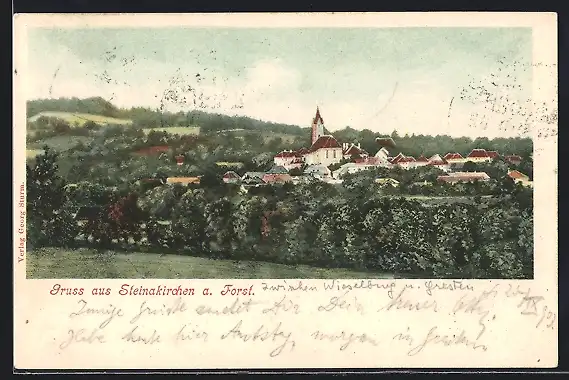 Verlag Georg Sturm.
Gruss aus Steinakirchen a. Forst. zwischen Wieselburg u. Gresten
Innige Grüße sendet Dir Dein
Habe heute hier Amtstag, morgen in Gresten